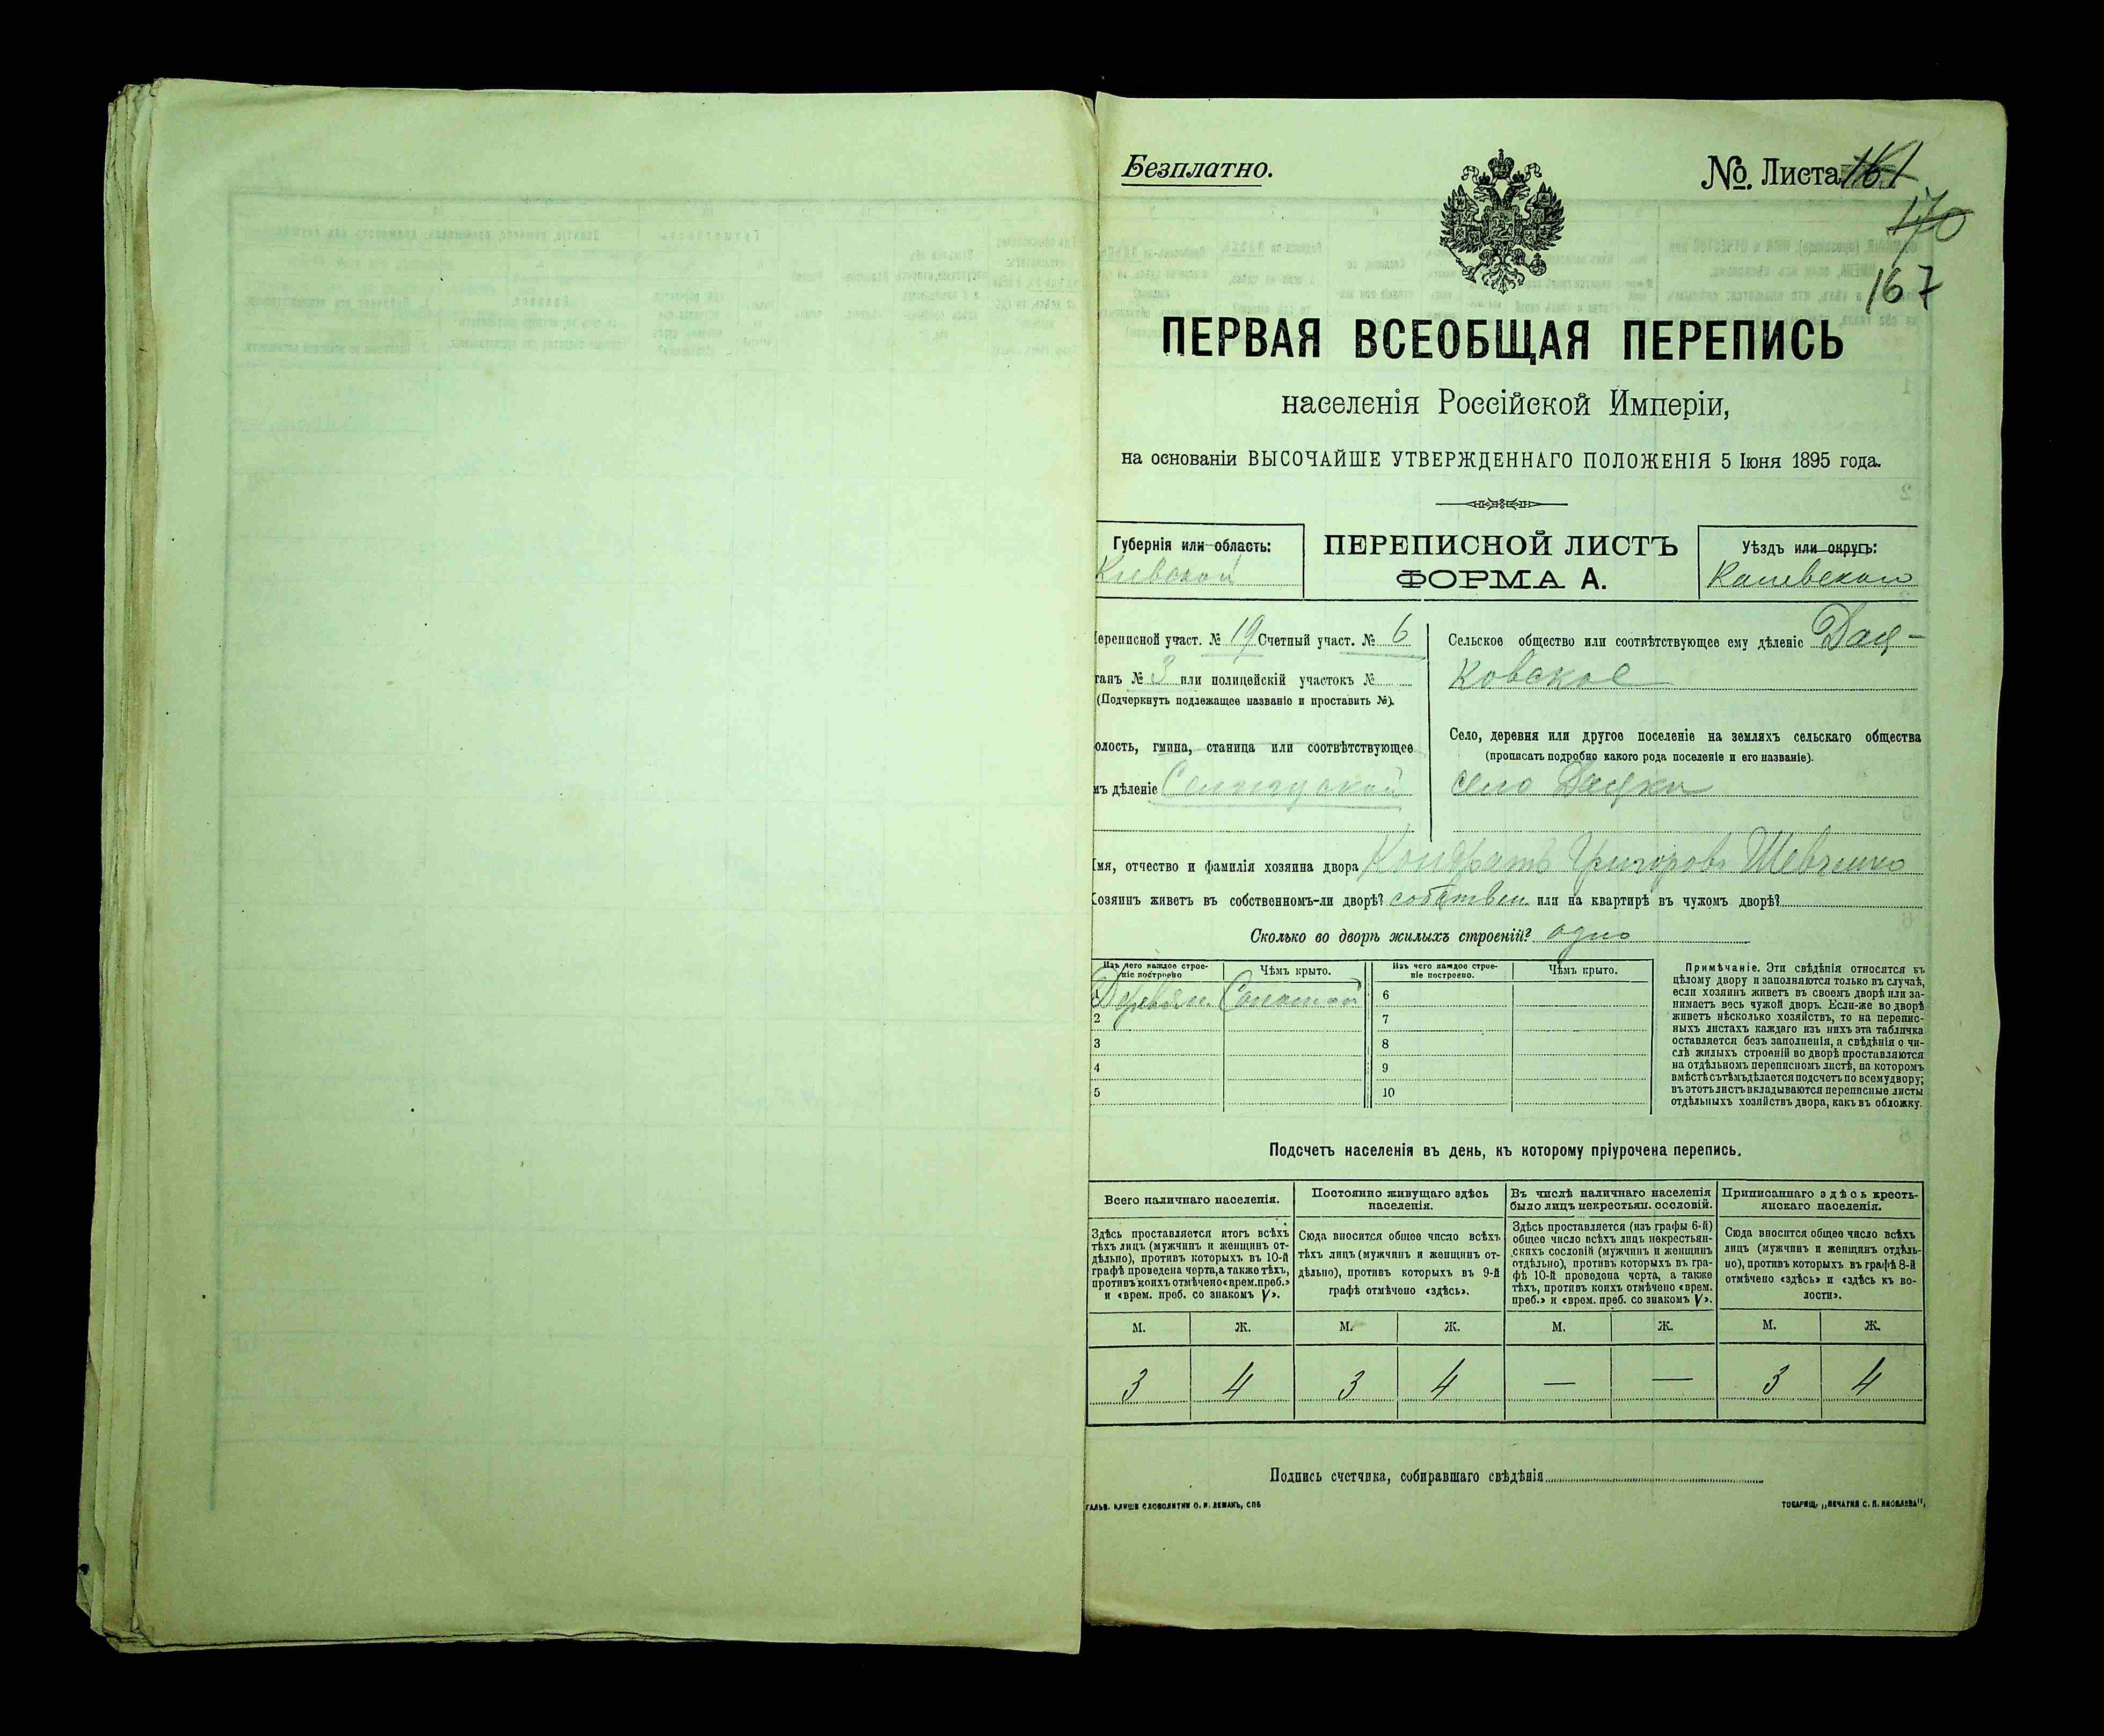 Безплатно.
№. Листа 161
170
167
ПЕРВАЯ ВСЕОБЩАЯ ПЕРЕПИСЬ
населенія Россійской Имперіи,
на основаніи ВЫСОЧАЙШЕ УТВЕРЖДЕННАГО ПОЛОЖЕНІЯ 5 Іюня 1895 года.
Губернія или область:
Киевской
ПЕРЕПИСНОЙ ЛИСТЪ
ФОРМА А.
Уѣздъ или округъ:
Каневскаго
ереписной участ. № 19 Счетный участ. № 6
танъ № 3 или полицейскій участокъ №
(Подчеркнуть подлежащее названіе и проставить №).
олость, гмина, станица или соотвѣтствующее
мъ дѣленіе
Сельское общество или соотвѣтствующее ему дѣленіе Дац-
ковское
Село, деревня или другое поселеніе на земляхъ сельскаго общества
(прописать подробно какого рода поселеніе и его названіе).
село Дацки
мя, отчество и фамилія хозяина двора Кондратъ Григоровъ Шевченко
озяинъ живетъ въ собственномъ-ли дворѣ? собствен. или на квартирѣ въ чужомъ дворѣ?
Сколько во дворѣ жилыхъ строеній? одно
Изъ чего каждое строе-
ніе построено
Чѣмъ крыто.
Изъ чего каждое строе-
ніе построено.
Чѣмъ крыто.
1 Деревян. Соломой
2
3
4
5
6
7
8
9
10
Примѣчаніе. Эти свѣдѣнія относятся къ
цѣлому двору и заполняются только въ случаѣ,
если хозяинъ живетъ въ своемъ дворѣ или за-
нимаетъ весь чужой дворъ. Если-же во дворѣ
живетъ нѣсколько хозяйствъ, то на перепис-
ныхъ листахъ каждаго изъ нихъ эта табличка
оставляется безъ заполненія, а свѣдѣнія о чи-
слѣ жилыхъ строеній во дворѣ проставляются
на отдѣльномъ переписномъ листѣ, на которомъ
вмѣстѣ съ тѣмъ дѣлается подсчетъ по всему двору;
въ этотъ листъ вкладываются переписные листы
отдѣльныхъ хозяйствъ двора, какъ въ обложку.
Подсчетъ населенія въ день, къ которому пріурочена перепись.
Всего наличнаго населенія.
Здѣсь проставляется итогъ всѣхъ
тѣхъ лицъ (мужчинъ и женщинъ от-
дѣльно), противъ которыхъ въ 10-й
графѣ проведена черта, а также тѣхъ,
противъ коихъ отмѣчено «врем. преб.»
и «врем. преб. со знакомъ V».
Постоянно живущаго здѣсь
населенія.
Сюда вносится общее число всѣхъ
тѣхъ лицъ (мужчинъ и женщинъ от-
дѣльно), противъ которыхъ въ 9-й
графѣ отмѣчено «здѣсь».
Въ числѣ наличнаго населенія
было лицъ некрестьян. сословій.
Здѣсь проставляется (изъ графы 6-й)
общее число всѣхъ лицъ некрестьян-
скихъ сословій (мужчинъ и женщинъ
отдѣльно), противъ которыхъ въ гра-
фѣ 10-й проведена черта, а также
тѣхъ, противъ коихъ отмѣчено «врем.
преб.» и «врем. преб. со знакомъ V».
Приписаннаго здѣсь кресть-
янскаго населенія.
Сюда вносится общее число всѣхъ
лицъ (мужчинъ и женщинъ отдѣль-
но), противъ которыхъ въ графѣ 8-й
отмѣчено «здѣсь» и «здѣсь къ во-
лости».
М. Ж. М. Ж. М. Ж. М. Ж.
3 4 3 4 — — 3 4
Подпись счетчика, собиравшаго свѣдѣнія
ГАЛЬВ. КЛИШЕ СЛОВОЛИТНИ О. И. ЛЕМАНЪ, СПБ
ТОВАРИЩ. „ПЕЧАТНЯ С. П. ЯКОВЛЕВА",